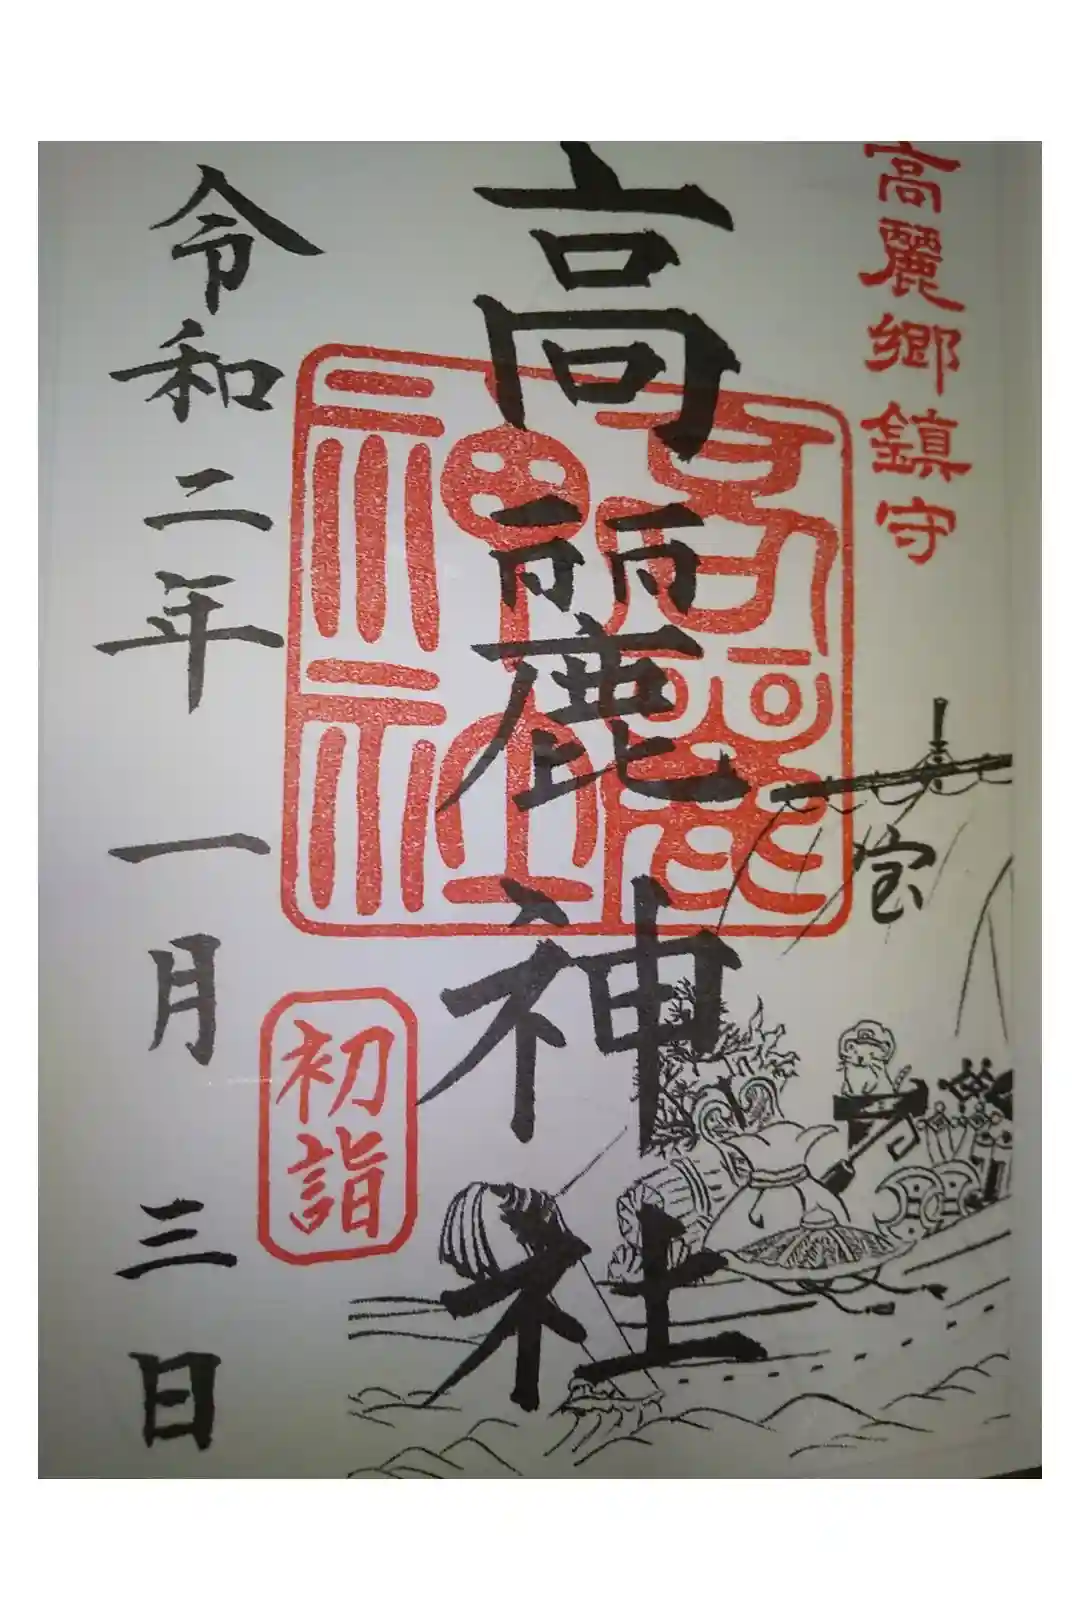 高麗郷鎮守
宝
高麗神社
高麗神社
初詣
令和二年一月三日